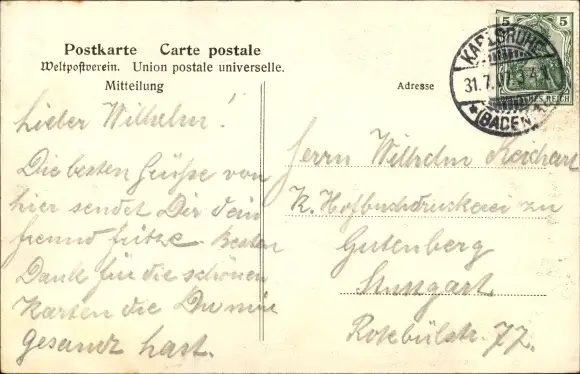 Postkarte Carte postale
Weltpostverein. Union postale universelle.
Mitteilung
Adresse
5 5
KARLSRUHE
31.7.07. 3-4
(BADEN)
REICH
Lieber Wilhelm!
Die besten Grüße von
hier sendet Dir dein
freund fritze. Besten
Dank für die schönen
Karten die Du mir
gesandt hast.
Herrn Wilhelm Reichart
K. Hofbuchdruckerei zu
Gutenberg
Stuttgart
Rotebülstr. 77.